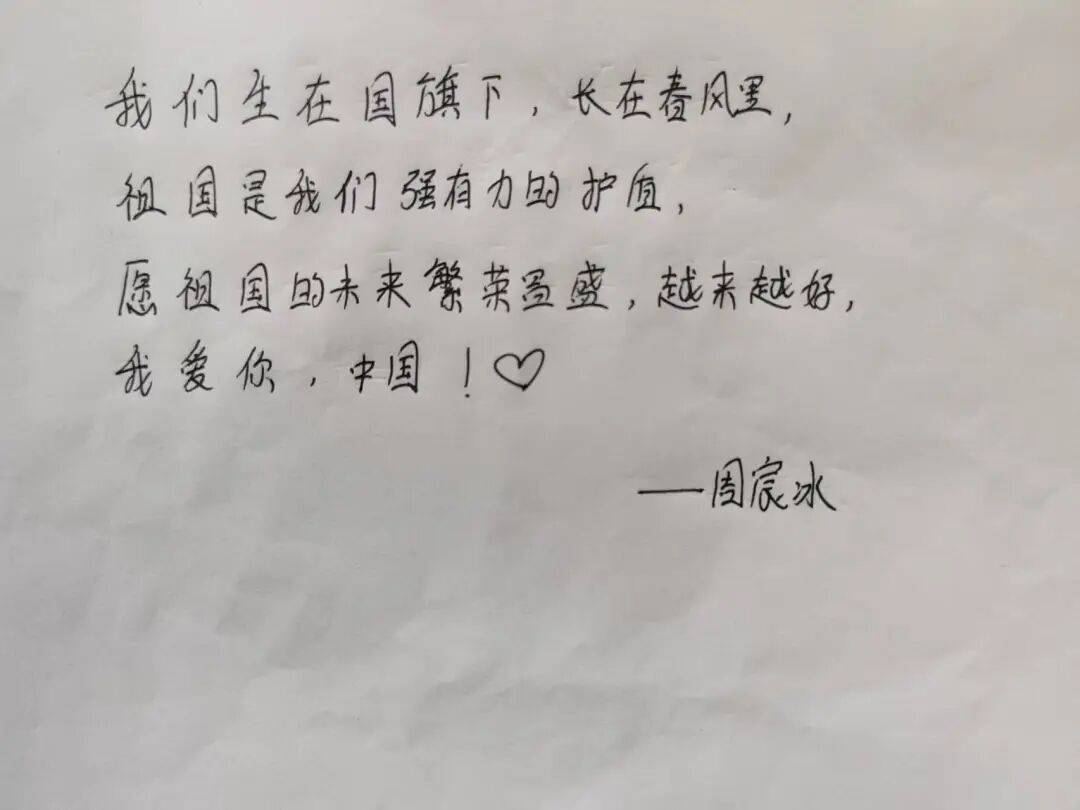 我们生在国旗下，长在春风里，
祖国是我们强有力的护盾，
愿祖国的未来繁荣昌盛，越来越好，
我爱你，中国！♡
——周宸冰